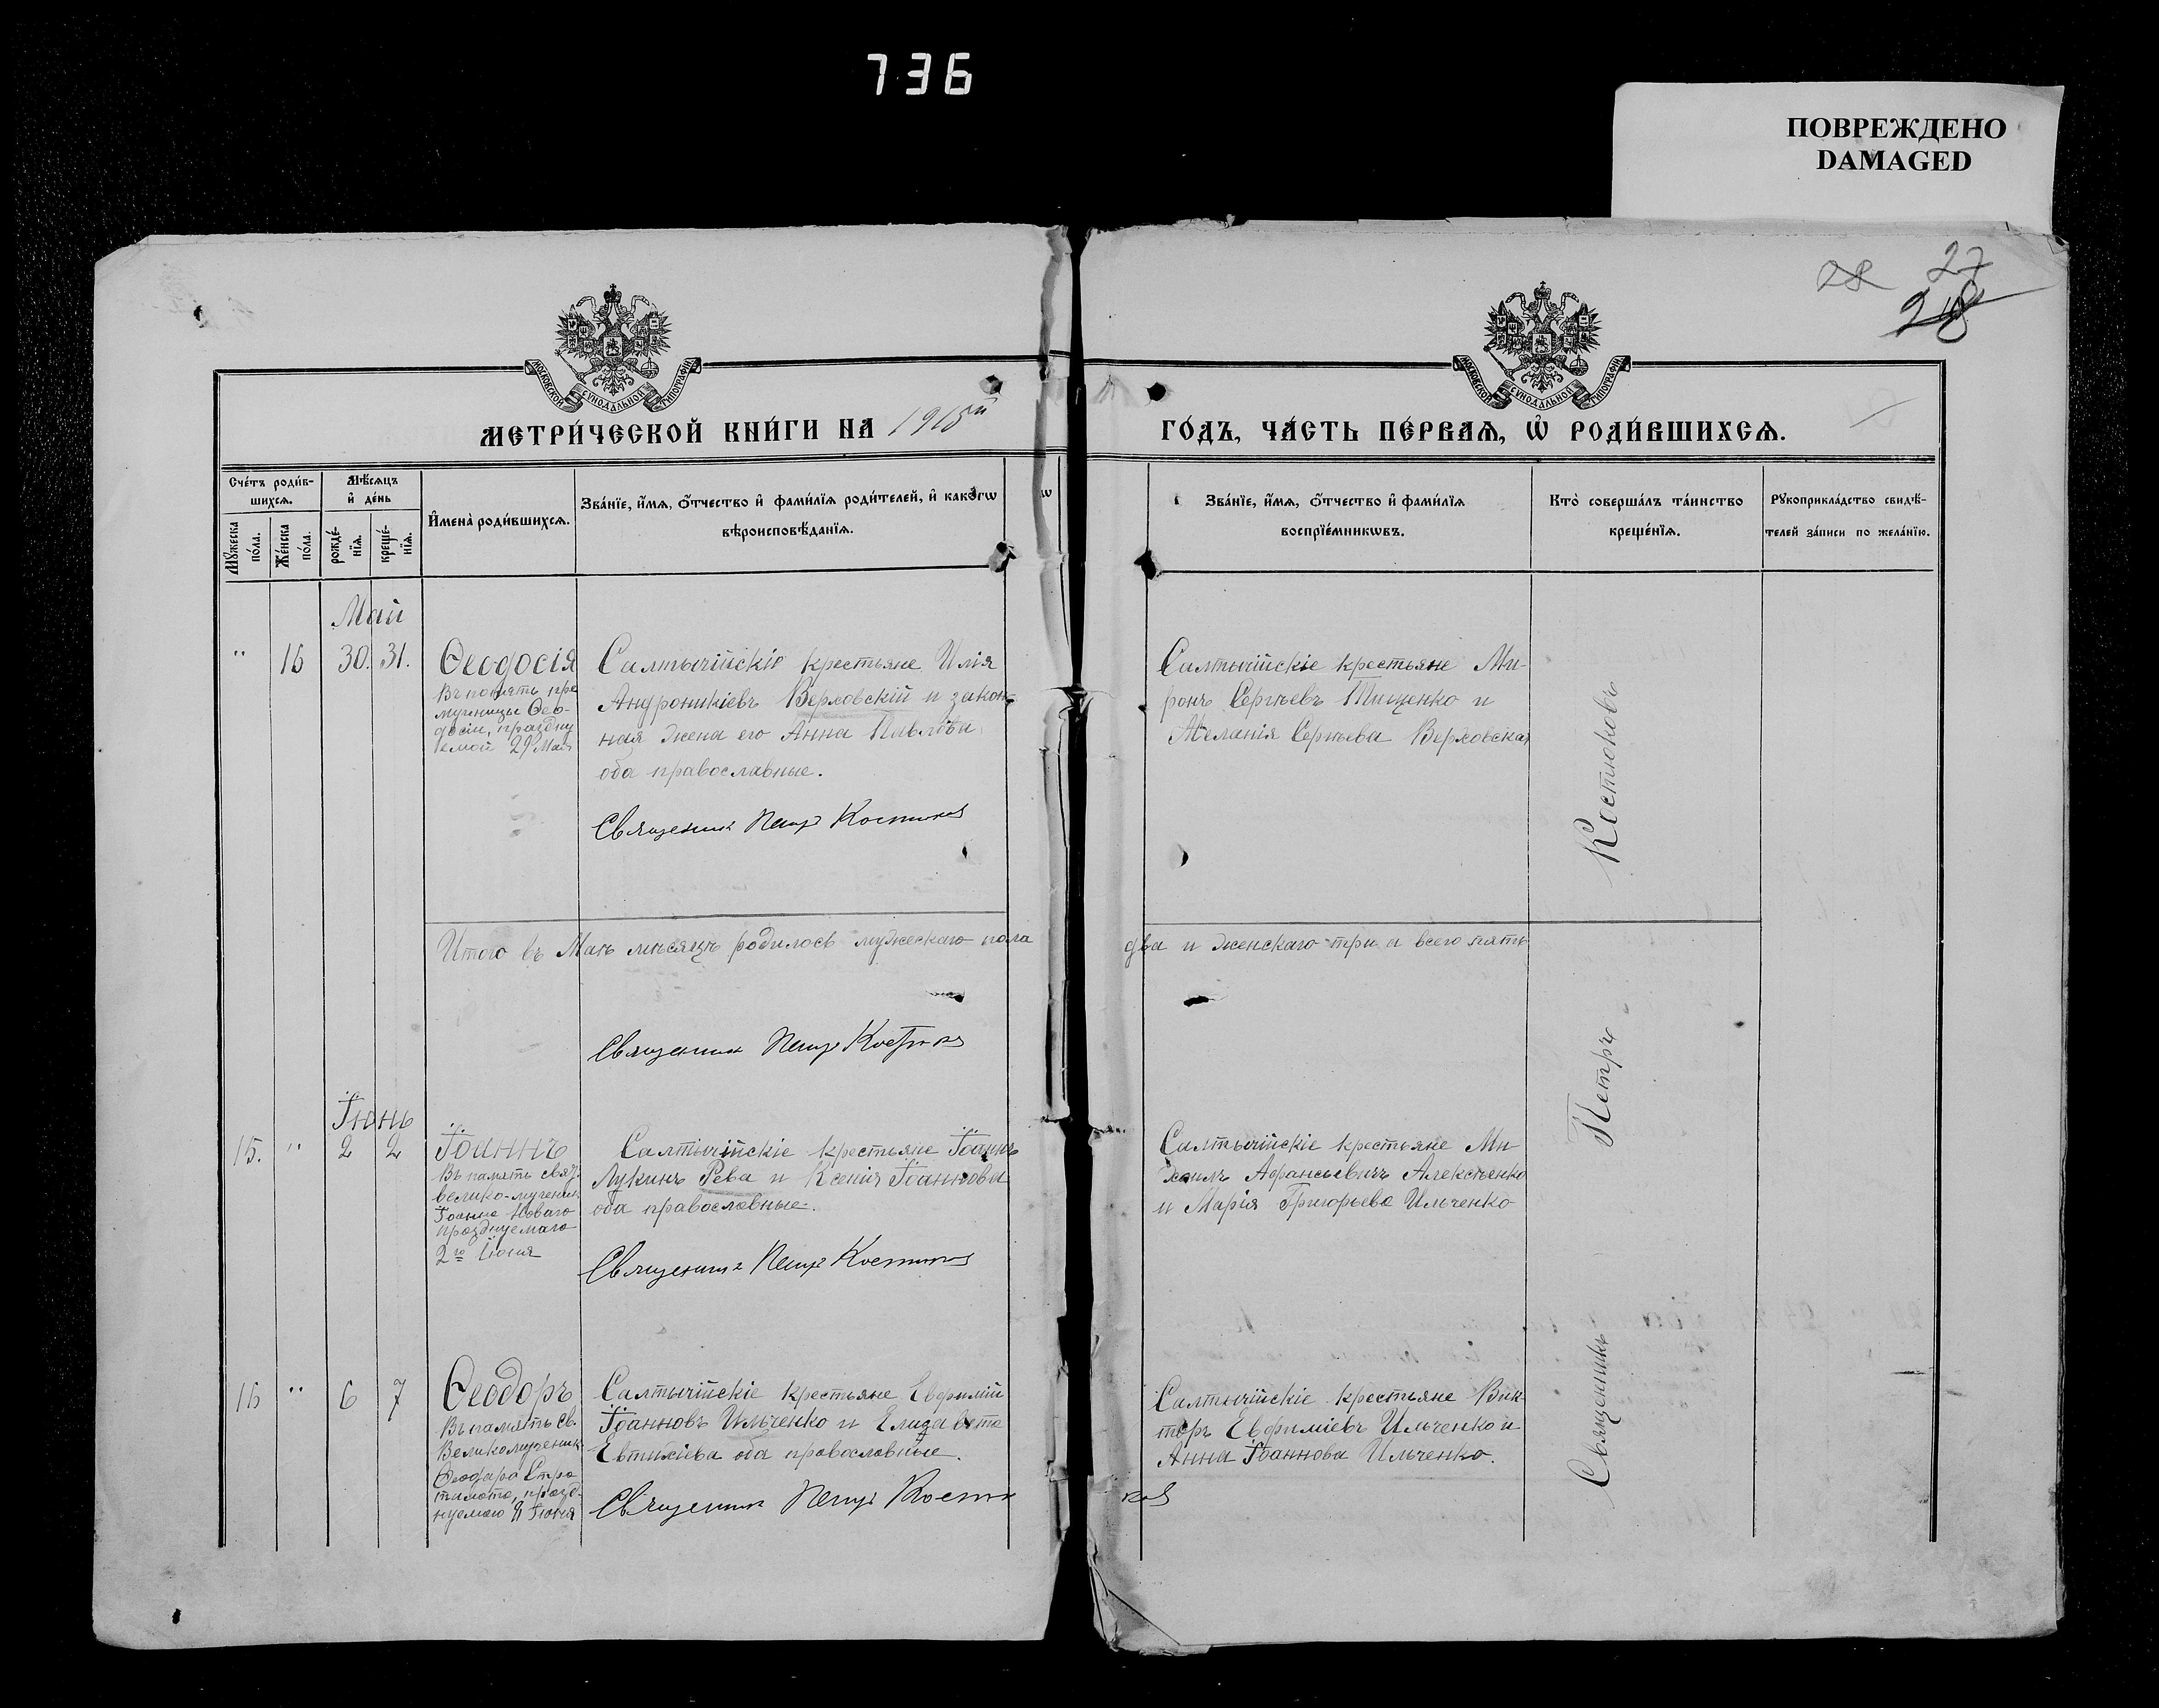 736
ПОВРЕЖДЕНО
DAMAGED
28 27
28
МОСКОВСКОЙ СУНОДАЛЬНОЙ ТИПОГРАФИИ
МОСКОВСКОЙ СУНОДАЛЬНОЙ ТИПОГРАФИИ
МЕТРИ́ЧЕСКОЙ КНИ́ГИ НА 1915й
ГО́ДЪ, ЧА́СТЬ ПЕ́РВАѦ, Ѡ҆ РОДИ́ВШИХСѦ.
Сче́тъ роди́в-
шихсѧ.
Мѣ́сяцъ
и҆ де́нь
Мꙋ́жеска
по́ла.
Же́нска
по́ла.
рожде́-
нїѧ.
креще́-
нїѧ.
И҆мена̀ роди́вшихсѧ.
Зва́нїе, и҆́мѧ, ѻ҆́тчество и҆ фами́лїѧ роди́телей, и҆ како́гѡ
вѣроисповѣ́данїѧ.
ѡ
Зва́нїе, и҆́мѧ, ѻ҆́тчество и҆ фами́лїѧ
воспрїе́мникѡвъ.
Кто̀ соверша́лъ та́инство
креще́нїѧ.
Рꙋкоприкла́дство свидѣ́-
телей за́писи по жела́нїю.
Май
" 16 30. 31.
Ѳеодосія
Въ память пре
мученицы Ѳео-
досіи, праздну
емой 29 Мая
Салтычійскіе крестьяне Илія
Андроникіевъ Верховскій и закон-
ная жена его Анна Павлова
оба православные.
Священник Петр Костюков
Салтычійскіе крестьяне Ми-
ронъ Сергѣевъ Тищенко и
Меланія Сергѣева Верховская
Итого въ Маѣ мѣсяцѣ родилось мужескаго пола
два и женскаго три а всего пять
Священник Петр Костюков
Іюнь
15. " 2 2
Іоаннъ
Въ память свят.
велико-мученик
Іоанна Новаго
празднуемаго
2го Іюня
Салтычійскіе крестьяне Іоаннъ
Лукинъ Рева и Ксенія Іоаннова
оба православные.
Священник Петр Костюков
Салтычійскіе крестьяне Ми
хаилъ Афанасьевичъ Алексѣенко
и Марія Григорьева Ильченко
16 " 6 7
Ѳеодоръ
Въ память св.
Великомученик
Ѳеодора Стра
тилата, празд-
нуемаго 8 Іюня
Салтычійскіе крестьяне Евфимій
Іоанновъ Ильченко и Елизавета
Евтихіева оба православные.
Священник Петр Костю
ков
Салтычійскіе крестьяне Вик-
торъ Евфиміевъ Ильченко и
Анна Іоаннова Ильченко.
Священникъ Петръ Костюковъ